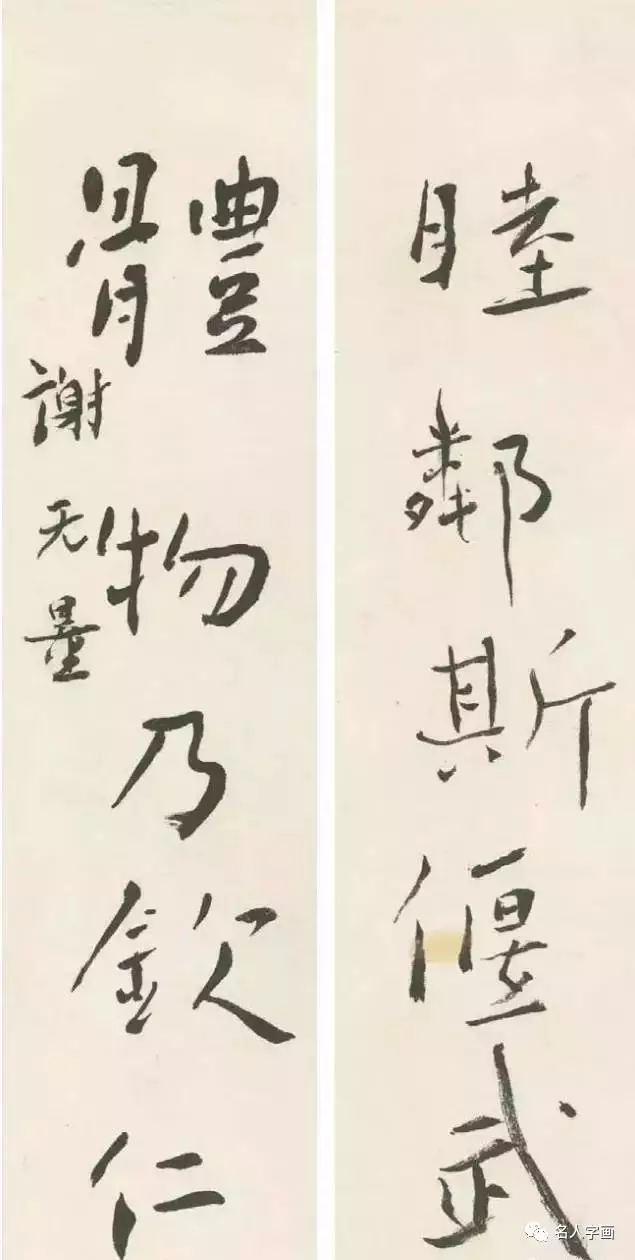 睦鄰斯偃武
體物乃欽仁
謝无量
名人字画